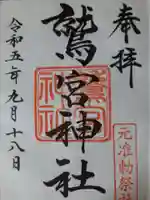 奉拝
元准勅祭社
鷲宮神社
令和五年九月十八日